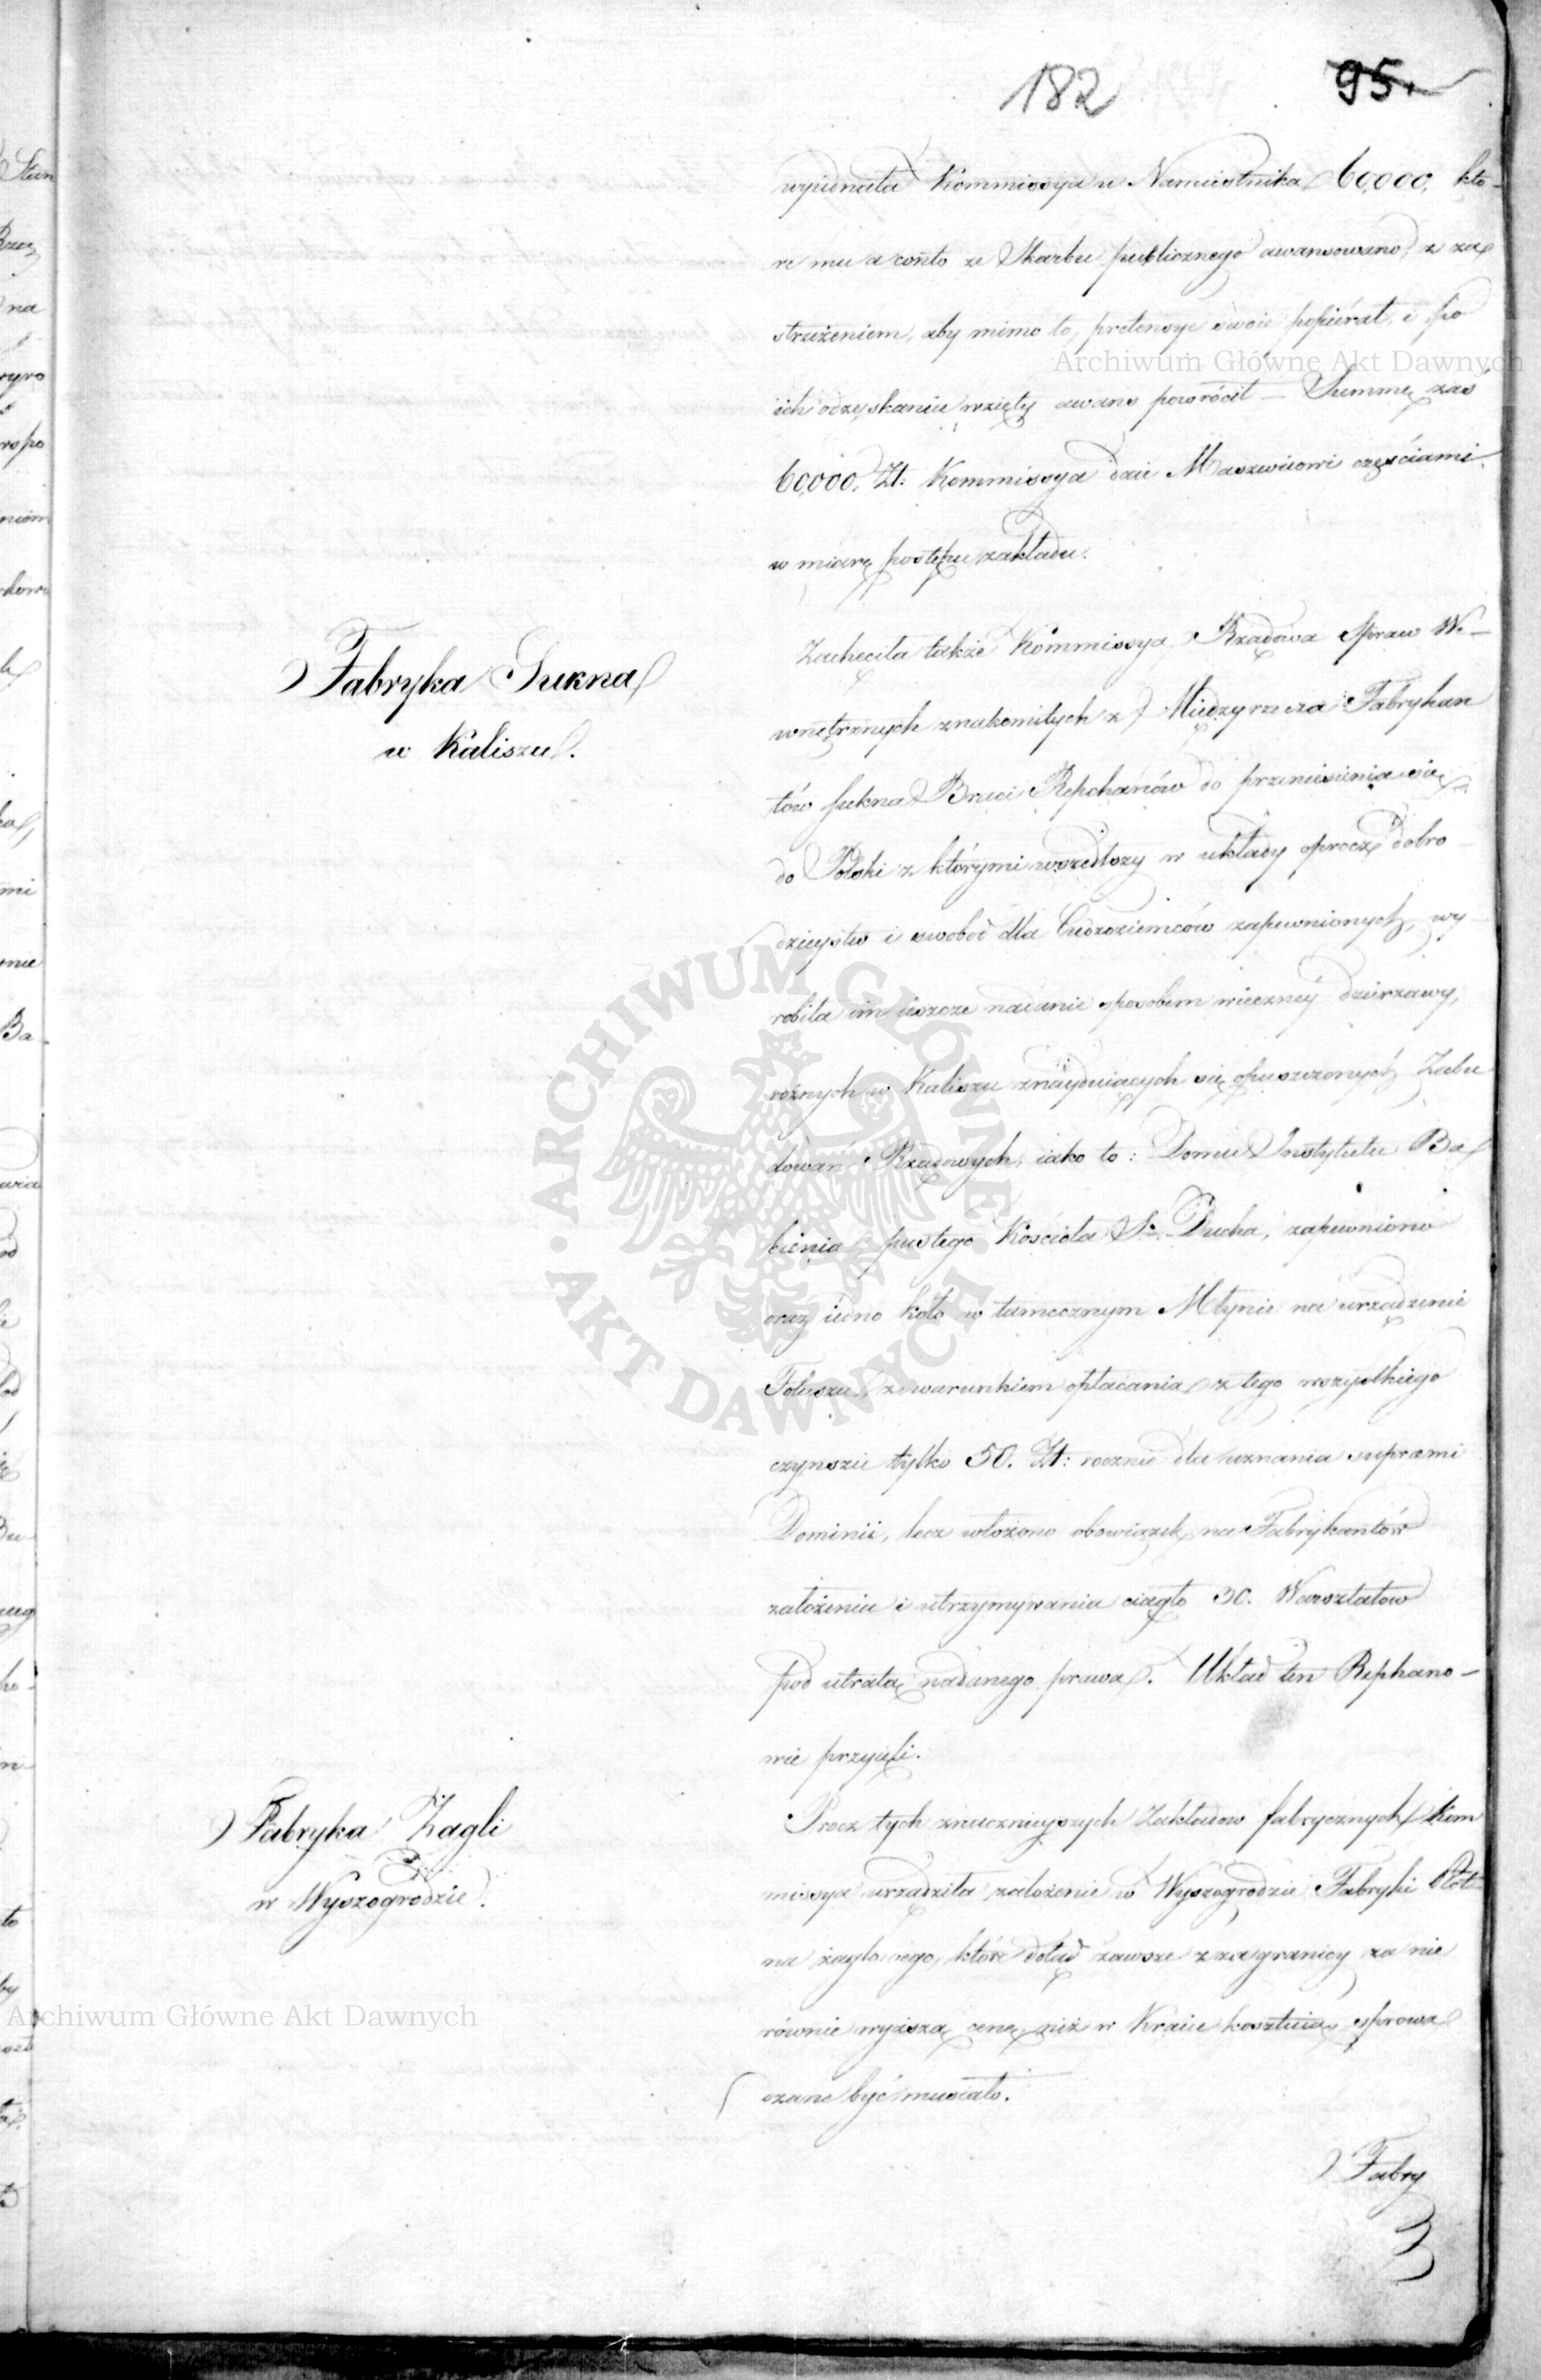 182
95.
wyiednała Kommissya u Namiestnika 60,000, któ-
re mu a conto ze Skarbu publicznego awansowano, z za
strzeżeniem, aby mimo to, pretensye swoie popiérał, i po
ich odzyskaniu wzięty awans powrócił – Summę zaś
60,000, Zł: Kommissya daie częściami
w miarę postępu zakładu.
Fabryka Sukna
w Kaliszu.
Zachęciła także Kommissya Rządowa Spraw We-
wnętrznych znakomitych z Międzyrzecza Fabrykan
tów sukna Braci Repchanów do przeniesienia się
do Polski z którymi wszedłszy w układy oprócz dobro
dzieystw i swobód dla Cudzoziemców zapewnionych, wy-
robiła im ieszcze nadanie sposobem wieczney dzierzawy,
rożnych w Kaliszu znayduiących się opuszczonych Zabu
dowań Rządowych, iako to: Domu Instytutu Ba
bienia pustego Kościoła S. Ducha, zapewniono
oraz iedno koło w tamecznym Młynie na urządzenie
Foluszu, z warunkiem opłacania z tego wszystkiego
czynszu tylko 50. Zł: rocznie dla uznania supremi
Dominii, lecz włożono obowiązek na Fabrykantów
założenia i utrzymywania ciągło 30. Warsztatow
pod utratą nadanego prawa. Układ ten Rephano-
wie przyięli.
Fabryka Żagli
w Wyszogrodzie.
Procz tych znacznieyszych Zakładow fabrycznych Kom
missya urządziła założenie w Wyszogrodzie Fabryki Płót
na żaglowego, które dotąd zawsze z zagranicy za nie
równie wyższą cenę, niż w Kraiu kosztuie, sprowa
dzane być musiało.
Fabry
Archiwum Główne Akt Dawnych
Archiwum Główne Akt Dawnych
ARCHIWUM GŁÓWNE
AKT DAWNYCH